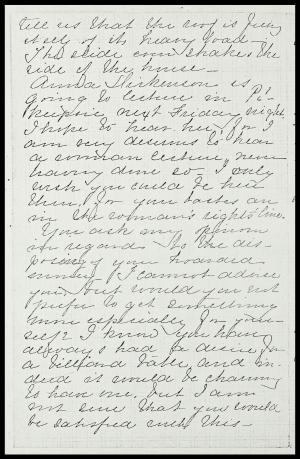 tell us that the roof is fully
of its heavy load —
The slide comes shake the
side of the house —
Anna Dickenson is
going to lecture in Po'-
keepsie next Friday night.
I hope to hear her, for I
am very desirous to hear
a woman lecture, never
having done so — I only
wish you could be here
then, for your tastes are
in the woman's rights line.
You ask my opinion
in regard to the dis-
posing of your hoarded
money. I cannot advise
you, but would you not
prefer to get something
more especially for your-
self? I know you have
always had a desire for
a billiard table, and in-
deed it would be charming
to have one, but I am
not sure that you would
be satisfied with this —